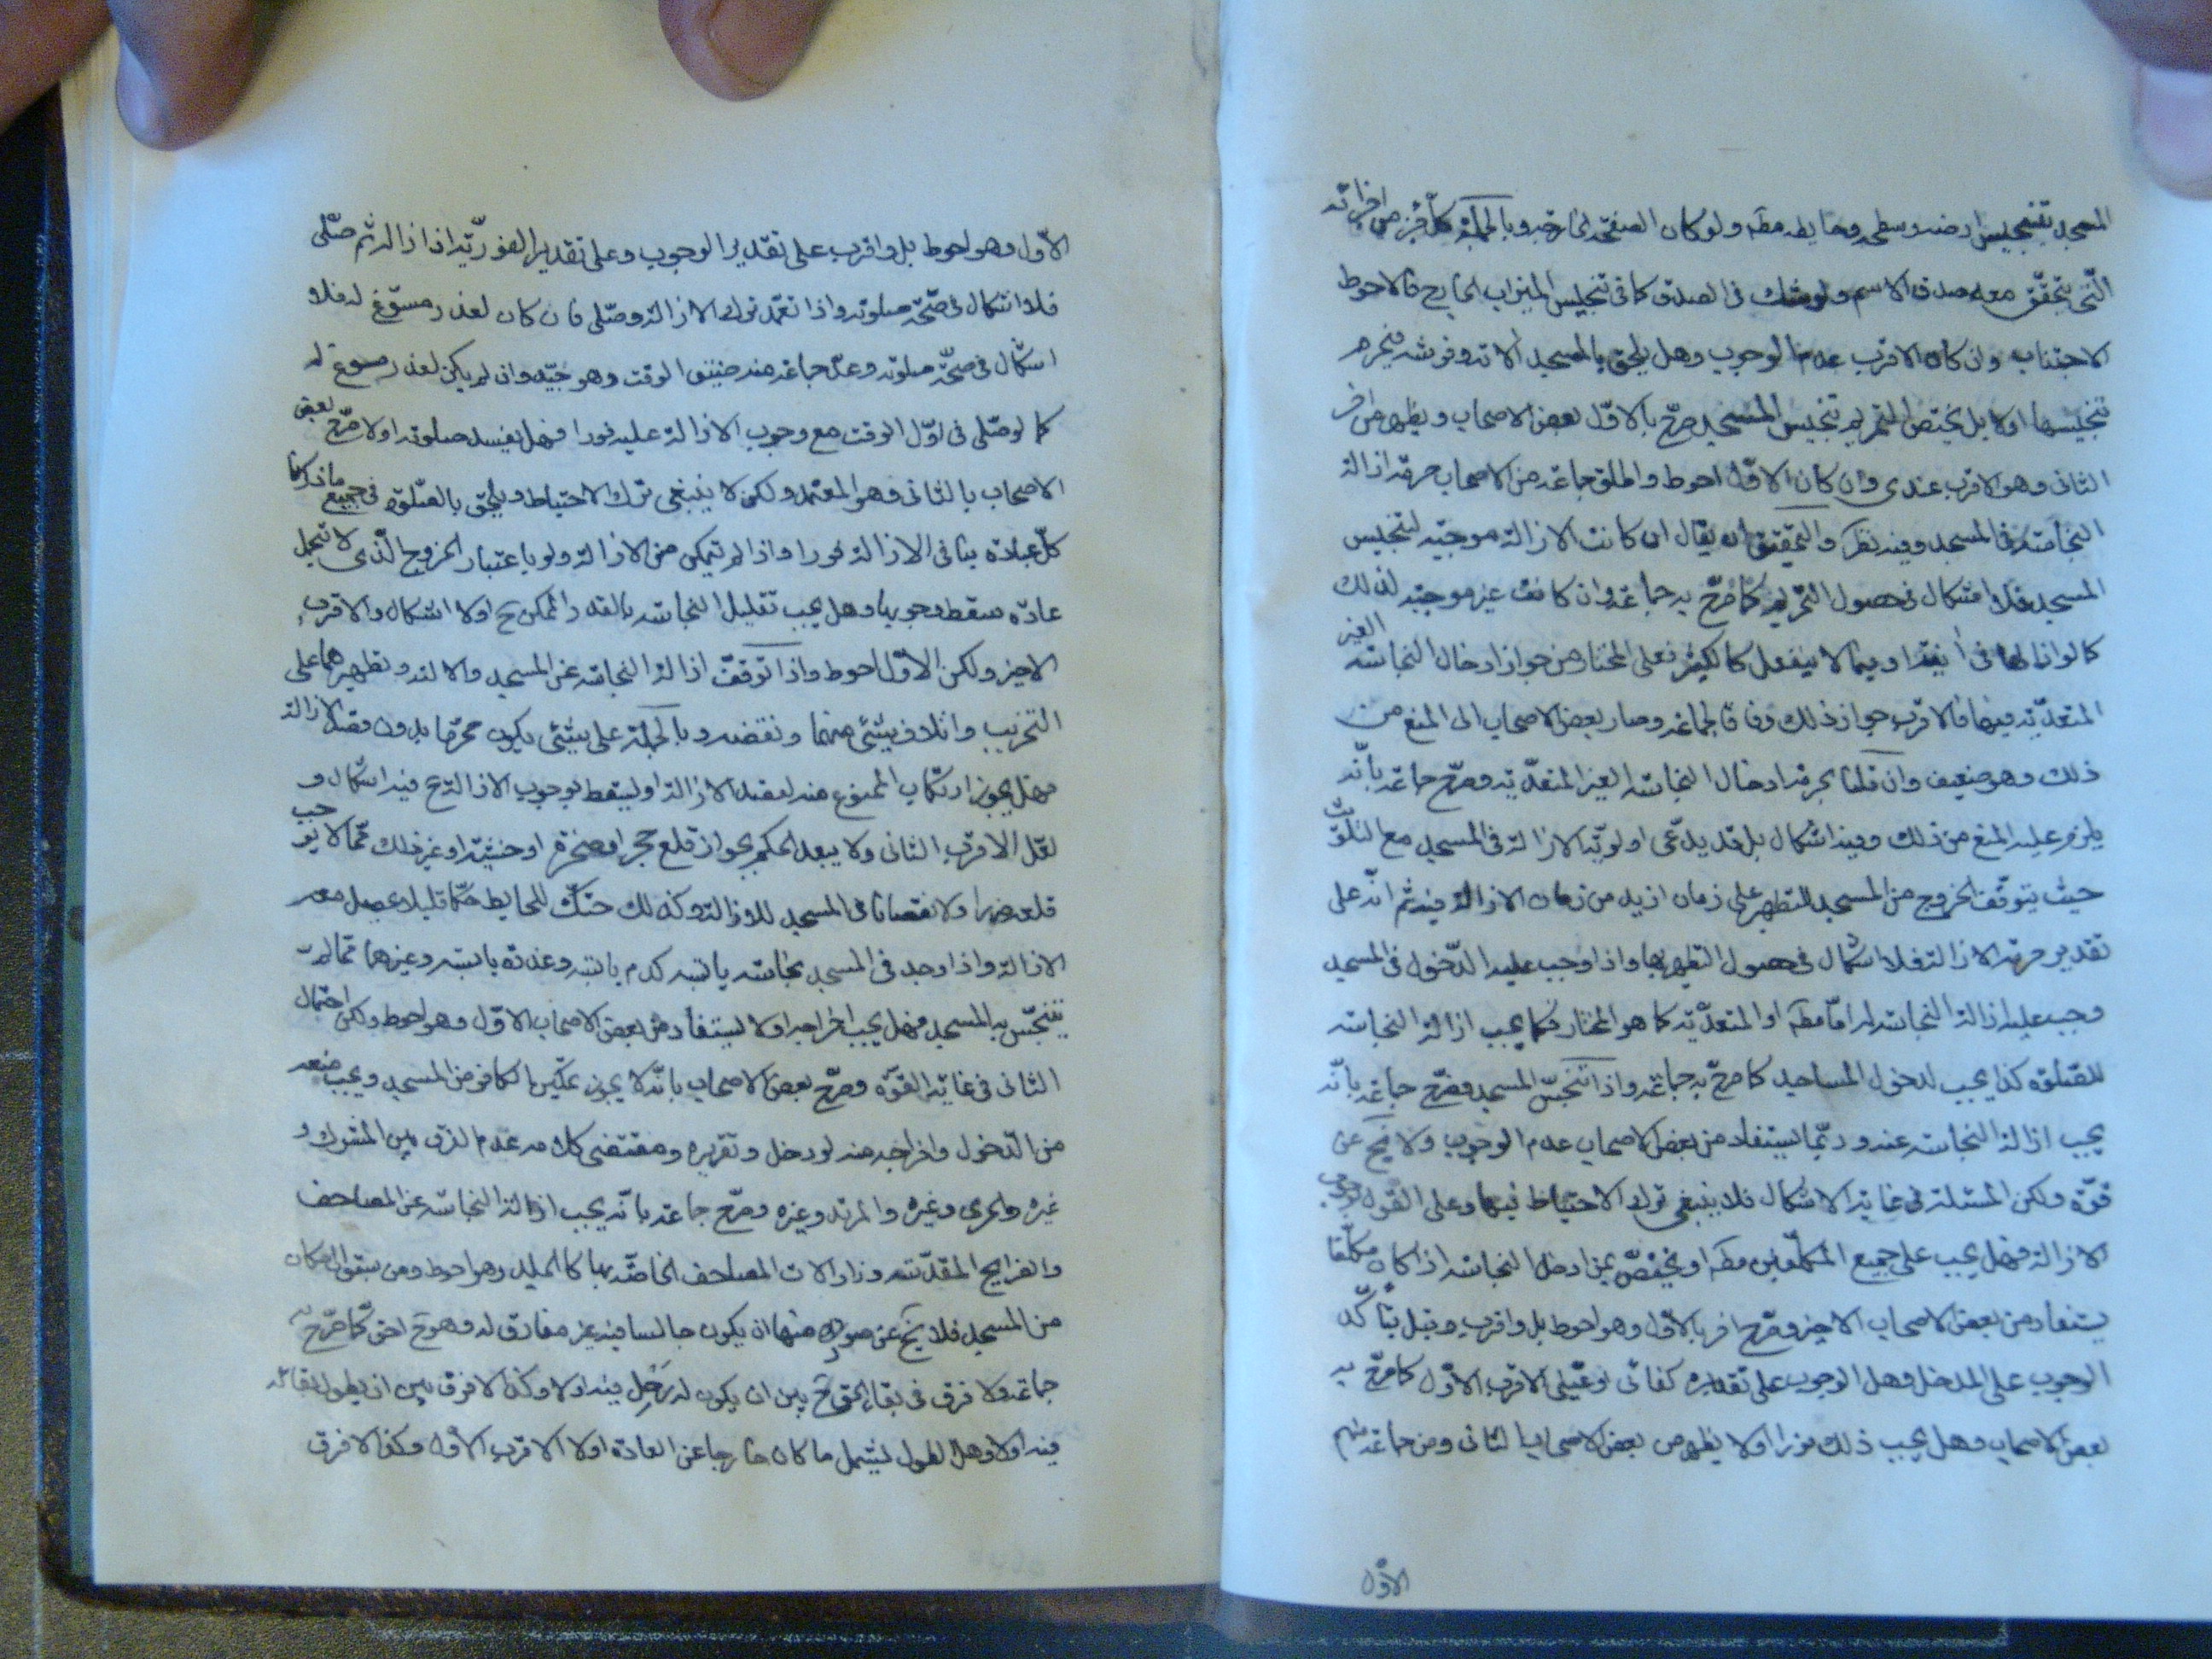 المسجد بتنجيس ارضه وسطحه وحايطه مطم ولو كان الصفحة الخارجة وبالجملة كل جزء من اجزائه
الّتي يتحقّق معه صدق الاسم ولو شك في الصدق كما في تنجيس الميزاب الخارج فالاحوط
الاجتناب وان كان الاقرب عدم الوجوب وهل يلحق بالمسجد آلاته وفرشه فيحرم
تنجيسها اولا بل يختص التحريم بتنجيس المسجد صرّح بالاوّل بعض الاصحاب ويظهر من اخر
الثاني وهو الاقرب عندي وان كان الاوّل احوط واطلق جماعة من الاصحاب حرمة ازالة
النجاسة في المسجد وفيه نظر والتحقيق ان يقال ان كانت الازالة موجبة لتنجيس
المسجد فلا اشكال في حصول التحريم كما صرّح به جماعة وان كانت غير موجبة لذلك
كما لو ازالها في آنية او فيما لا ينفعل كالكثير فعلى المختار من جواز ادخال النجاسة الغير
المتعدّية فيها فالاقرب جواز ذلك وفاقا لجماعة وصار بعض الاصحاب الى المنع من
ذلك وهو ضعيف وان قلنا بحرمة ادخال النجاسة الغير المتعدّية وصرّح جماعة بانّه
يلزم عليه المنع من ذلك وفيه اشكال بل قد يدّعى اولويّة الازالة في المسجد مع التلوّث
حيث يتوقّف الخروج من المسجد للتطهير على زمان ازيد من زمان الازالة فيه ثم انّه على
تقدير حرمة الازالة فلا اشكال في حصول التطهير بها واذا وجب عليه الدّخول في المسجد
وجب عليه ازالة النجاسة له امّا مطم او المتعدّية كما هو المختار فكما يجب ازالة النجاسة
للصّلوة كذا يجب لدخول المساجد كما صرّح به جماعة واذا تنجّس المسجد فصرّح جماعة بانّه
يجب ازالة النجاسة عنه وربّما يستفاد من بعض الاصحاب عدم الوجوب ولا يخ عن
قوّة ولكن المسئلة في غاية الاشكال فلا ينبغي ترك الاحتياط فيها وعلى القول بوجوب
الازالة فهل يجب على جميع المكلّفين مطم او يختصّ بمن ادخل النجاسة اذا كان مكلّفا
يستفاد من بعض الاصحاب الاخير وصرّح اخر بالاوّل وهو احوط بل واقرب وقيل يتأكّد
الوجوب على المدخل وهل الوجوب على تقديره كفائى او عينى الاقرب الاوّل كما صرّح به
بعض الاصحاب وهل يجب ذلك فورا اولا يظهر من بعض الاصحاب الثاني ومن جماعة منهم
الاوّل
الاوّل وهو احوط بل واقرب على تقدير الوجوب وعلى تقدير الفوريّة اذا ازاله ثم صلّى
فلا اشكال في صحّة صلوته واذا تعمّد ترك الازالة وصلّى فان كان لعذر مسوّغ له فلا
اشكال في صحّة صلوته وعدّ جماعة منه ضيق الوقت وهو جيّد وان لم يكن لعذر مسوغ له
كما لو صلّى في اوّل الوقت مع وجوب الازالة عليه فورا فهل يفسد صلوته اولا صرّح بعض
الاصحاب بالثاني وهو المعتمد ولكن لا ينبغي ترك الاحتياط ويلحق بالصّلوة في جميع ما ذكرنا
كلّ عبادة ينافي الازالة فورا واذا لم يتمكن من الازالة ولو باعتبار الخروج الّذي لا يتحمل
عادة سقط وجوبها وهل يجب تقليل النجاسة بالقدر الممكن ح اولا اشكال والاقرب
الاخير ولكن الاوّل احوط واذا توقّف ازالة النجاسة عن المسجد والالة وتطهيرهما على
التخريب واتلاف شئ منهما ونقضه وبالجملة على شئ يكون محرّما بدون قصد الازالة
فهل يجوز ارتكاب الممنوع منه لقصد الازالة او يسقط وجوب الازالة ح فيه اشكال و
لعلّ الاقرب الثاني ولا يبعد الحكم بجواز قلع حجر او صخرة او خشبة او غير ذلك ممّا لا يوجب
قلعه ضررا ولا نقصانا في المسجد للازالة وكذلك حكّ للحايط حكّا قليلا يحصل معه
الازالة واذا وجد في المسجد نجاسة يابسة كدم يابس وعذرة يابسة وغيرهما ممّا لم
يتنجّس به المسجد فهل يجب اخراجه اولا يستفاد من بعض الاصحاب الاوّل وهو احوط ولكن احتمال
الثاني في غاية القوّة وصرّح بعض الاصحاب بانّه لا يجوز تمكين الكافر من المسجد ويجب منعه
من الدّخول واخراجه منه لو دخل وتقريره ومقتضى كلامه عدم الفرق بين المشرك و
غيره والحربي وغيره والمرتد وغيره وصرّح جماعة بانّه يجب ازالة النجاسة عن المصاحف
والضرايح المقدّسة وزاد آلات المصاحف الخاصّة بها كالجلد وهو احوط ومن سبق الى مكان
من المسجد فلا يخ عن صور منها ان يكون جالسا فيه غير مفارق له وهو ح احق كما صرّح به
جماعة ولا فرق في بقاء الحق ح بين ان يكون له رَحْل فيه اولا وكذا لا فرق بين ان يطول بقائه
فيه اولا وهل الطول يشمل ما كان خارجا عن العادة اولا الاقرب الاوّل وكذا لا فرق